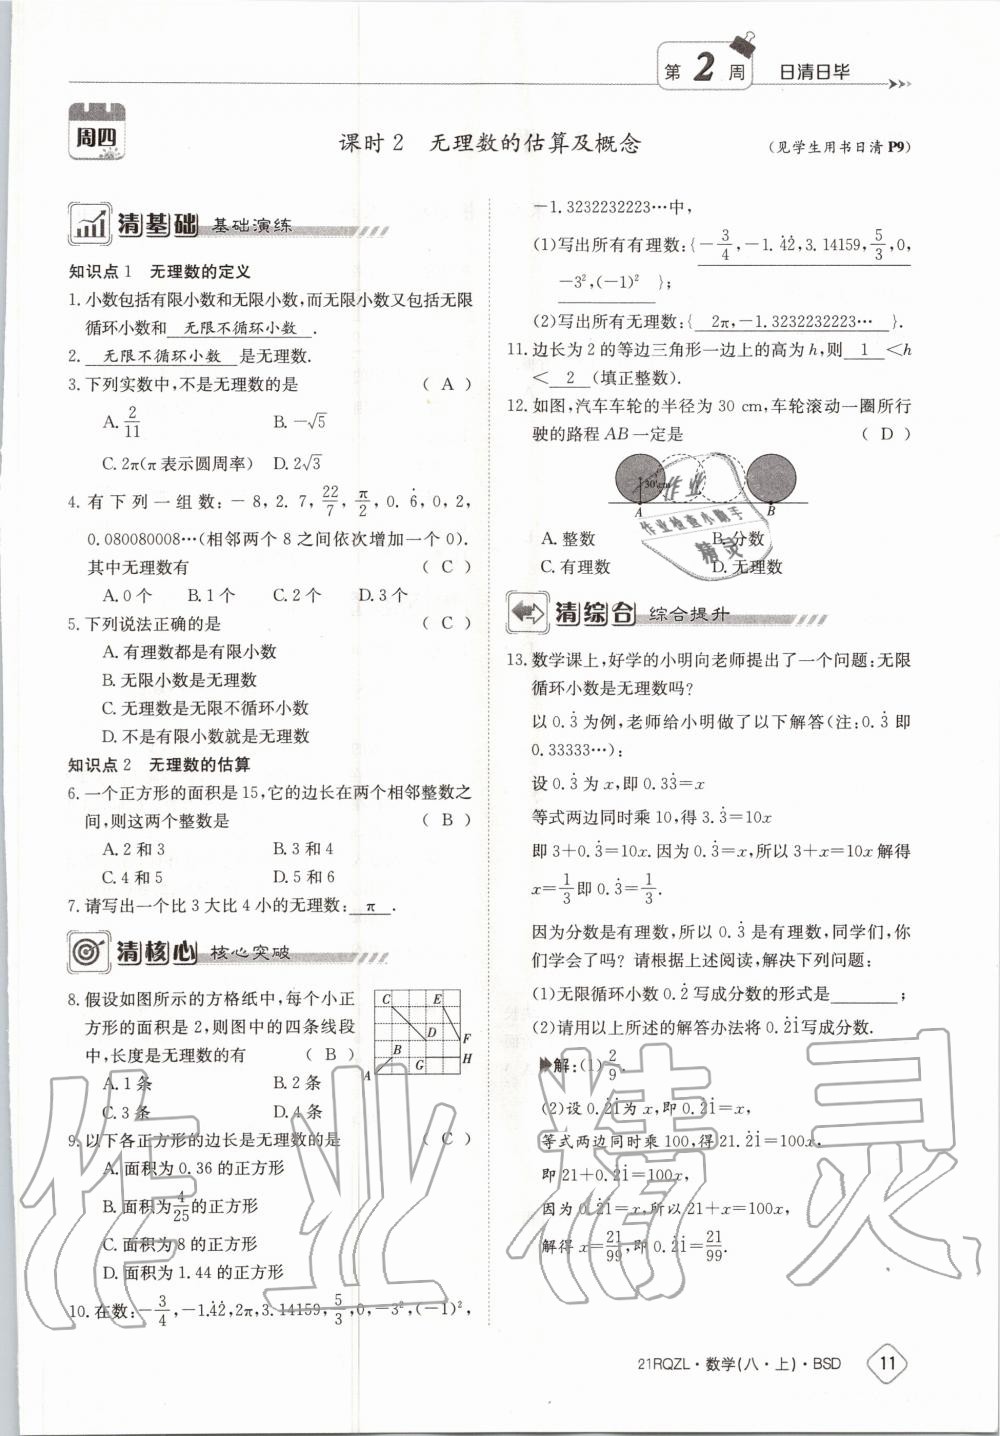 第2周 日清日毕
周四
课时2 无理数的估算及概念 (见学生用书日清P9)
清基础 基础演练
知识点1 无理数的定义
1.小数包括有限小数和无限小数,而无限小数又包括无限
循环小数和 无限不循环小数 .
2. 无限不循环小数 是无理数.
3.下列实数中,不是无理数的是 ( A )
A. 2/11 B. -√5
C. 2π(π表示圆周率) D. 2√3
4.有下列一组数:-8,2.7,22/7,π/2,0.6̇,0,2,
0.080080008…(相邻两个8之间依次增加一个0).
其中无理数有 ( C )
A.0个 B.1个 C.2个 D.3个
5.下列说法正确的是 ( C )
A.有理数都是有限小数
B.无限小数是无理数
C.无理数是无限不循环小数
D.不是有限小数就是无理数
知识点2 无理数的估算
6.一个正方形的面积是15,它的边长在两个相邻整数之
间,则这两个整数是 ( B )
A.2和3 B.3和4
C.4和5 D.5和6
7.请写出一个比3大比4小的无理数: π .
清核心 核心突破
8.假设如图所示的方格纸中,每个小正
方形的面积是2,则图中的四条线段
中,长度是无理数的有 ( B )
A.1条 B.2条
C.3条 D.4条
C E
D F
B G H
A
9.以下各正方形的边长是无理数的是 ( C )
A.面积为0.36的正方形
B.面积为4/25的正方形
C.面积为8的正方形
D.面积为1.44的正方形
10.在数:-3/4,-1.4̇2̇,2π,3.14159,5̇/3,0,-3²,(-1)²,
-1.3232232223…中,
(1)写出所有有理数:{ -3/4,-1.4̇2̇,3.14159,5̇/3,0,
-3²,(-1)² };
(2)写出所有无理数:{ 2π,-1.3232232223… }.
11.边长为2的等边三角形一边上的高为h,则 1 <h
< 2 (填正整数).
12.如图,汽车车轮的半径为30 cm,车轮滚动一圈所行
驶的路程AB一定是 ( D )
30 cm
A B
A.整数 B.分数
C.有理数 D.无理数
作业检查小助手
精灵
清综合 综合提升
13.数学课上,好学的小明向老师提出了一个问题:无限
循环小数是无理数吗?
以0.3̇为例,老师给小明做了以下解答(注:0.3̇即
0.33333…):
设0.3̇为x,即0.33̇=x
等式两边同时乘10,得3.3̇=10x
即3+0.3̇=10x.因为0.3̇=x,所以3+x=10x解得
x=1/3即0.3̇=1/3.
因为分数是有理数,所以0.3̇是有理数,同学们,你
们学会了吗? 请根据上述阅读,解决下列问题:
(1)无限循环小数0.2̇写成分数的形式是 ;
(2)请用以上所述的解答办法将0.2̇1̇写成分数.
解:(1)2/9.
(2)设0.2̇1̇为x,即0.2̇1̇=x,
等式两边同时乘100,得21.2̇1̇=100x,
即21+0.2̇1̇=100x,
因为0.2̇1̇=x,所以21+x=100x,
解得x=21/99,即0.2̇1̇=21/99.
作业精灵
21RQZL·数学(八·上)·BSD 11